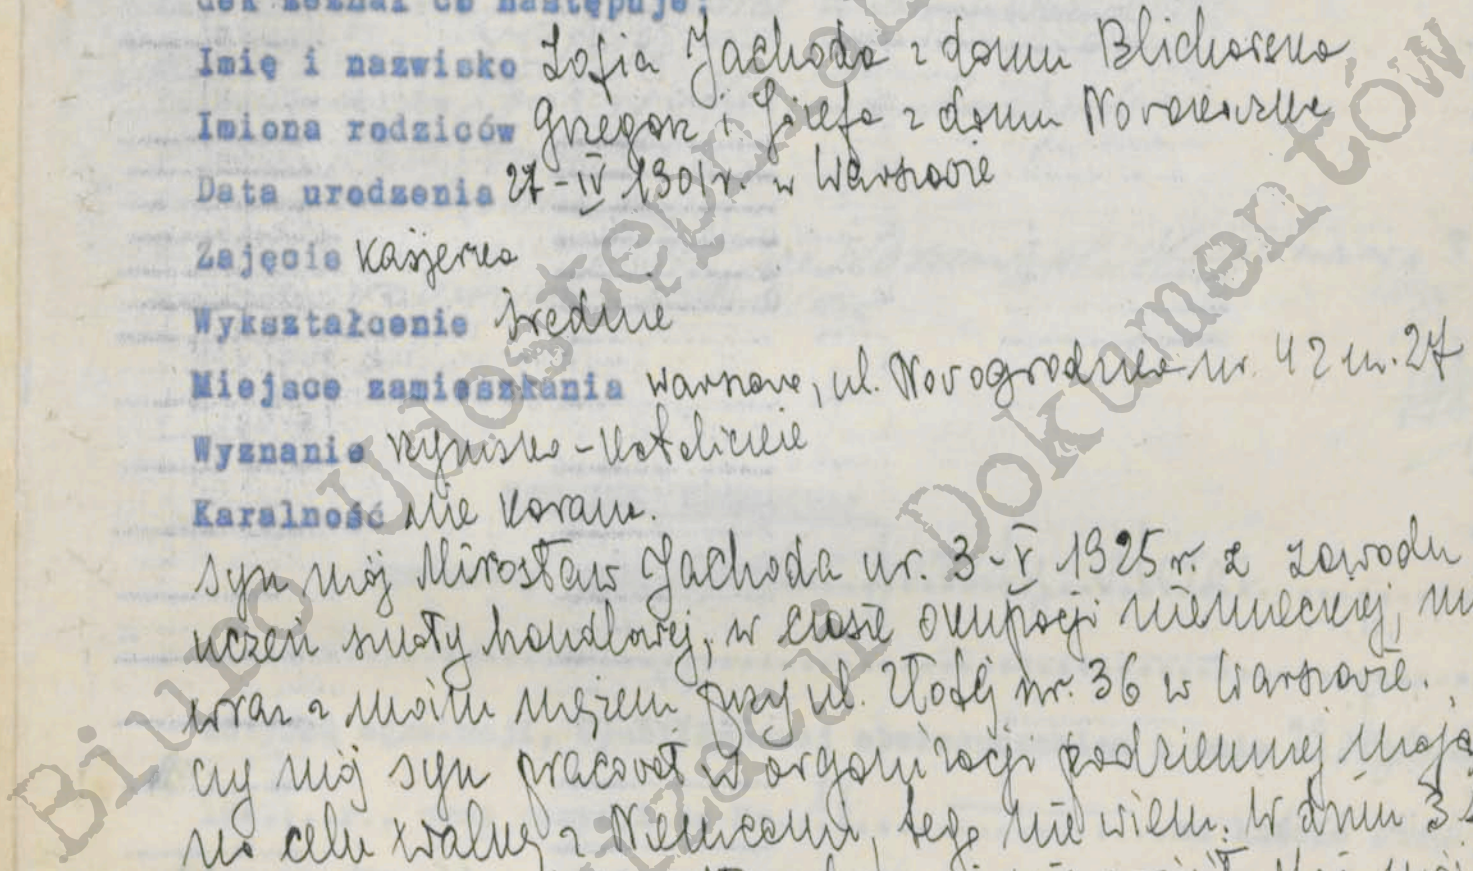 dek zeznał co następuje:
Imię i nazwisko Zofia Jachoda z domu Blicharska
Imiona rodziców Grzegorz i Józefa z domu Nowakowska
Data urodzenia 27-IV 1901 r. w Warszawie
Zajęcie kasjerka
Wykształcenie średnie
Miejsce zamieszkania Warszawa, ul. Nowogrodzka nr. 42 m. 27
Wyznanie rzymsko-katolickie
Karalność nie karana.
Syn mój Mirosław Jachoda ur. 3-V 1925 r. z zawodu
uczeń szkoły handlowej, w czasie okupacji niemieckiej,
wraz z moim mężem przy ul. Złotej nr. 36 w Warszawie.
czy mój syn pracował w organizacji podziemnej mają
na celu walkę z Niemcami, tego nie wiem. W dniu 3
Biuro Udostępnia
izacji Dokumentów